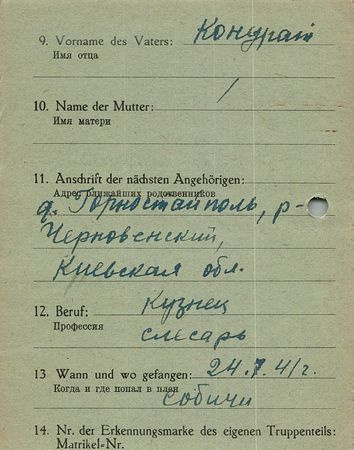 9. Vorname des Vaters: Кондрат
Имя отца
10. Name der Mutter: /
Имя матери
11. Anschrift der nächsten Angehörigen:
Адрес ближайших родственников
д. Горностайполь, р-
Черновенский,
Киевская обл.
12. Beruf: Кузнец
Профессия
слесарь
13 Wann und wo gefangen: 24.7.41 г.
Когда и где попал в плен
Собичи
14. Nr. der Erkennungsmarke des eigenen Truppenteils:
Matrikel-Nr.